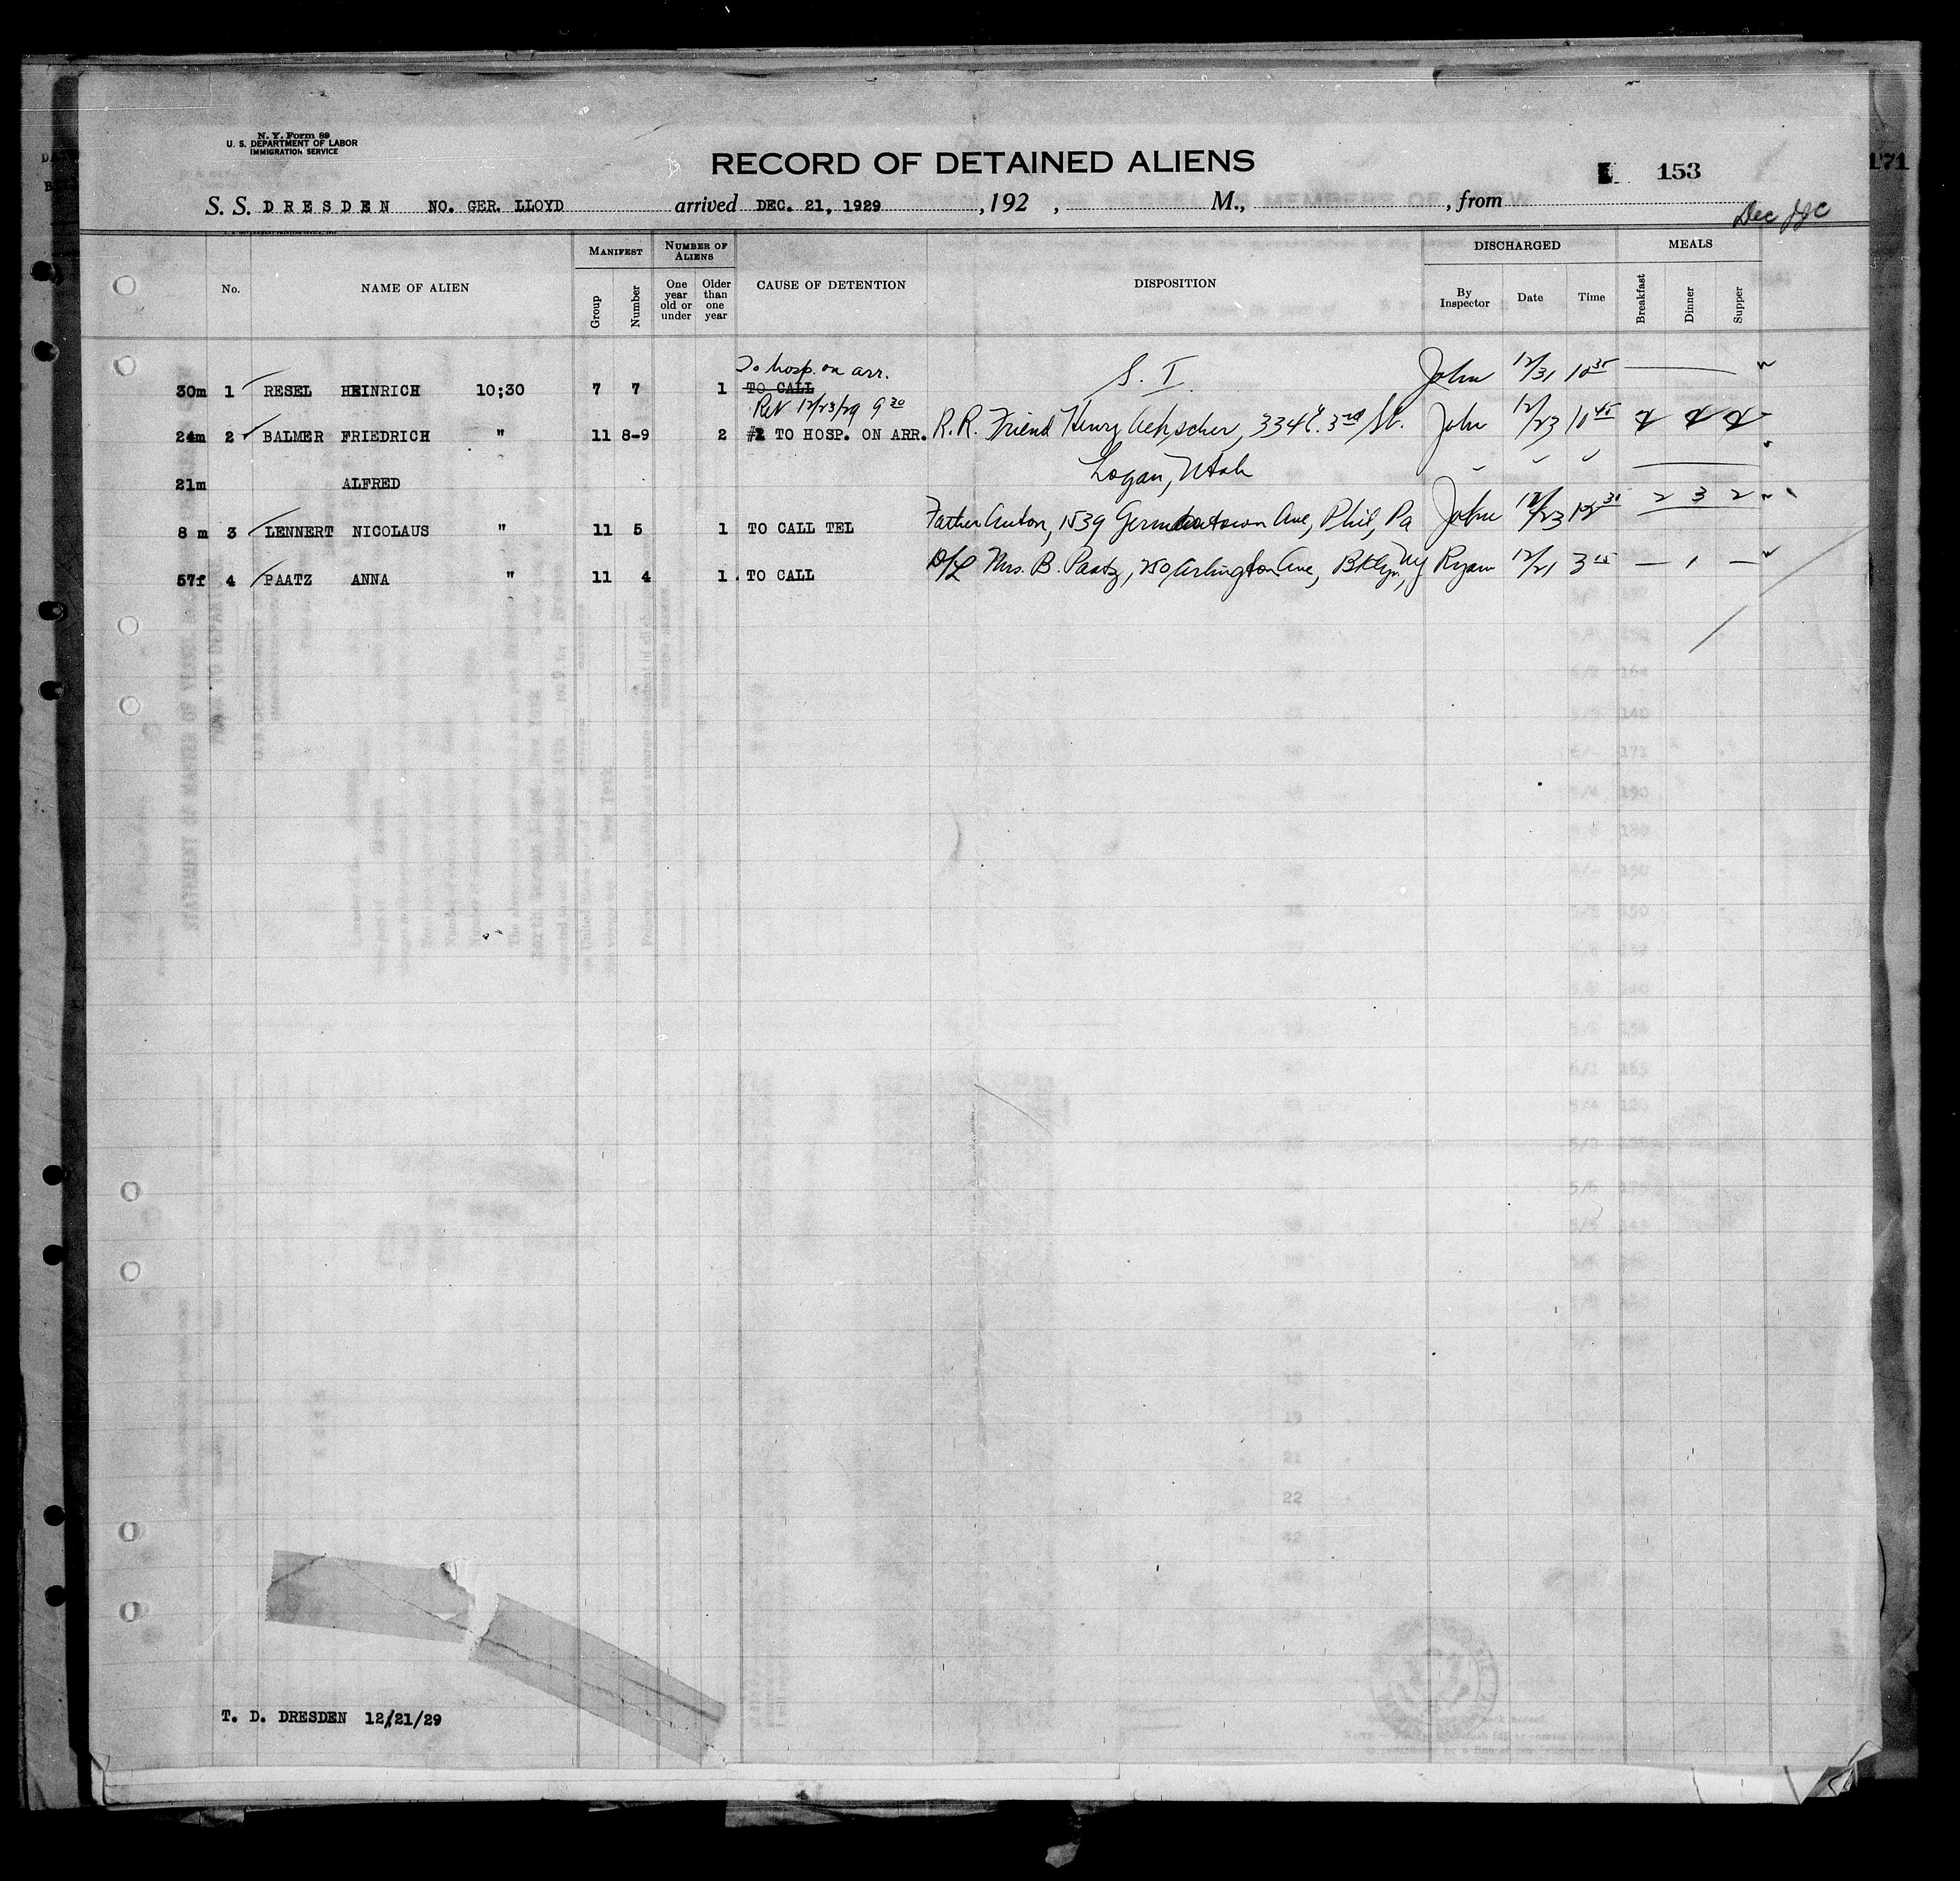 N. Y. Form 89
U. S. DEPARTMENT OF LABOR
IMMIGRATION SERVICE
RECORD OF DETAINED ALIENS
153
171
S. S. DRESDEN NO. GER. LLOYD arrived DEC. 21, 1929, 192 , M., , from
Dec
No. NAME OF ALIEN MANIFEST Group Number NUMBER OF ALIENS One year old or under Older than one year CAUSE OF DETENTION DISPOSITION DISCHARGED By Inspector Date Time MEALS Breakfast Dinner Supper
To hosp. on arr.
30m 1 RESEL HEINRICH 10;30 7 7 1 TO CALL S. I. John 12/31 10 35
Ret 12/23/29 9 30
24m 2 BALMER FRIEDRICH " 11 8-9 2 TO HOSP. ON ARR. R.R. Friend Henry 334 E. 3rd St. John 12/23 10 45
21m ALFRED Logan, Utah
8 m 3 LENNERT NICOLAUS " 11 5 1 TO CALL TEL Father Anton, 1539 Germantown Ave, Phil, Pa John 12/23 12 30 2 3 2
57f 4 PAATZ ANNA " 11 4 1 TO CALL D/L Mrs. B. Paatz, 250 Arlington Ave, Bklyn, NY Ryan 12/21 3 15 — 1 —
T. D. DRESDEN 12/21/29